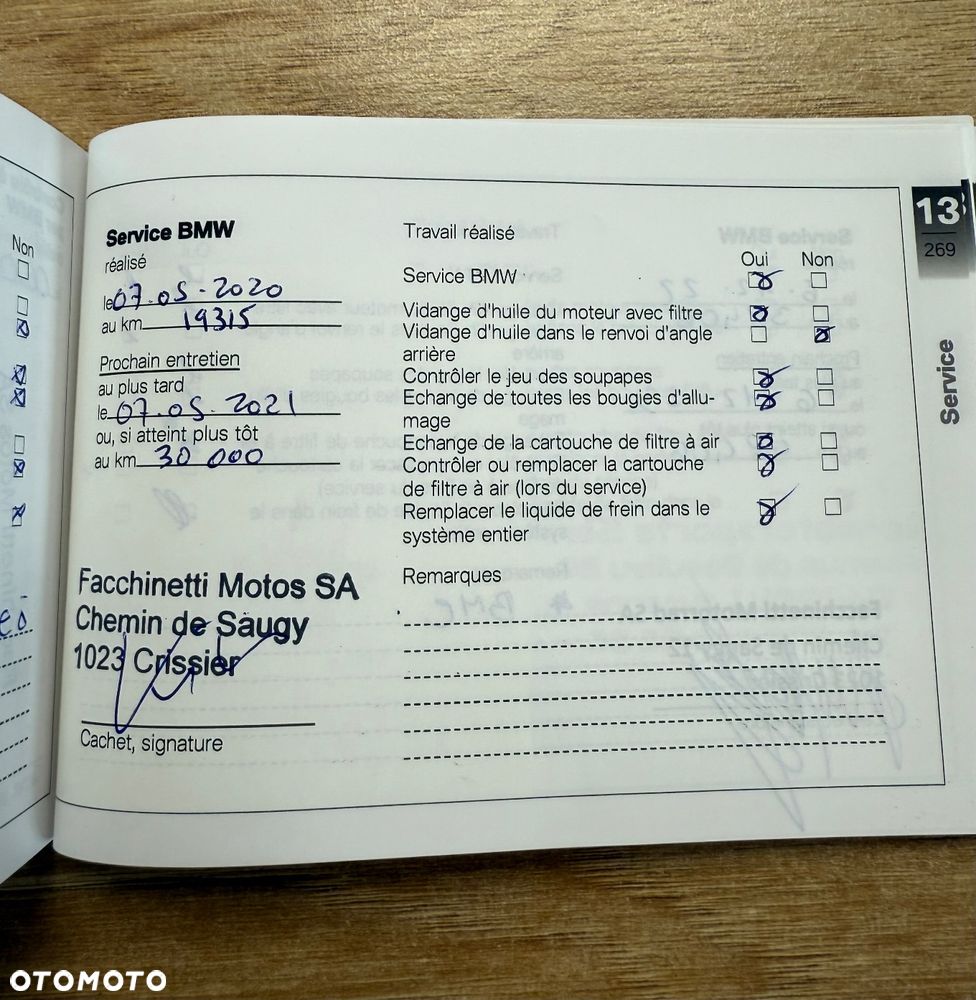 Non
Service BMW
réalisé
le 07.05.2020
au km 19315
Prochain entretien
au plus tard
le 07.05.2021
ou, si atteint plus tôt
au km 30 000
Facchinetti Motos SA
Chemin de Saugy
1023 Crissier
Cachet, signature
Travail réalisé
Oui Non
Service BMW
Vidange d'huile du moteur avec filtre
Vidange d'huile dans le renvoi d'angle
arrière
Contrôler le jeu des soupapes
Echange de toutes les bougies d'allu-
mage
Echange de la cartouche de filtre à air
Contrôler ou remplacer la cartouche
de filtre à air (lors du service)
Remplacer le liquide de frein dans le
système entier
Remarques
13
269
Service
OTOMOTO